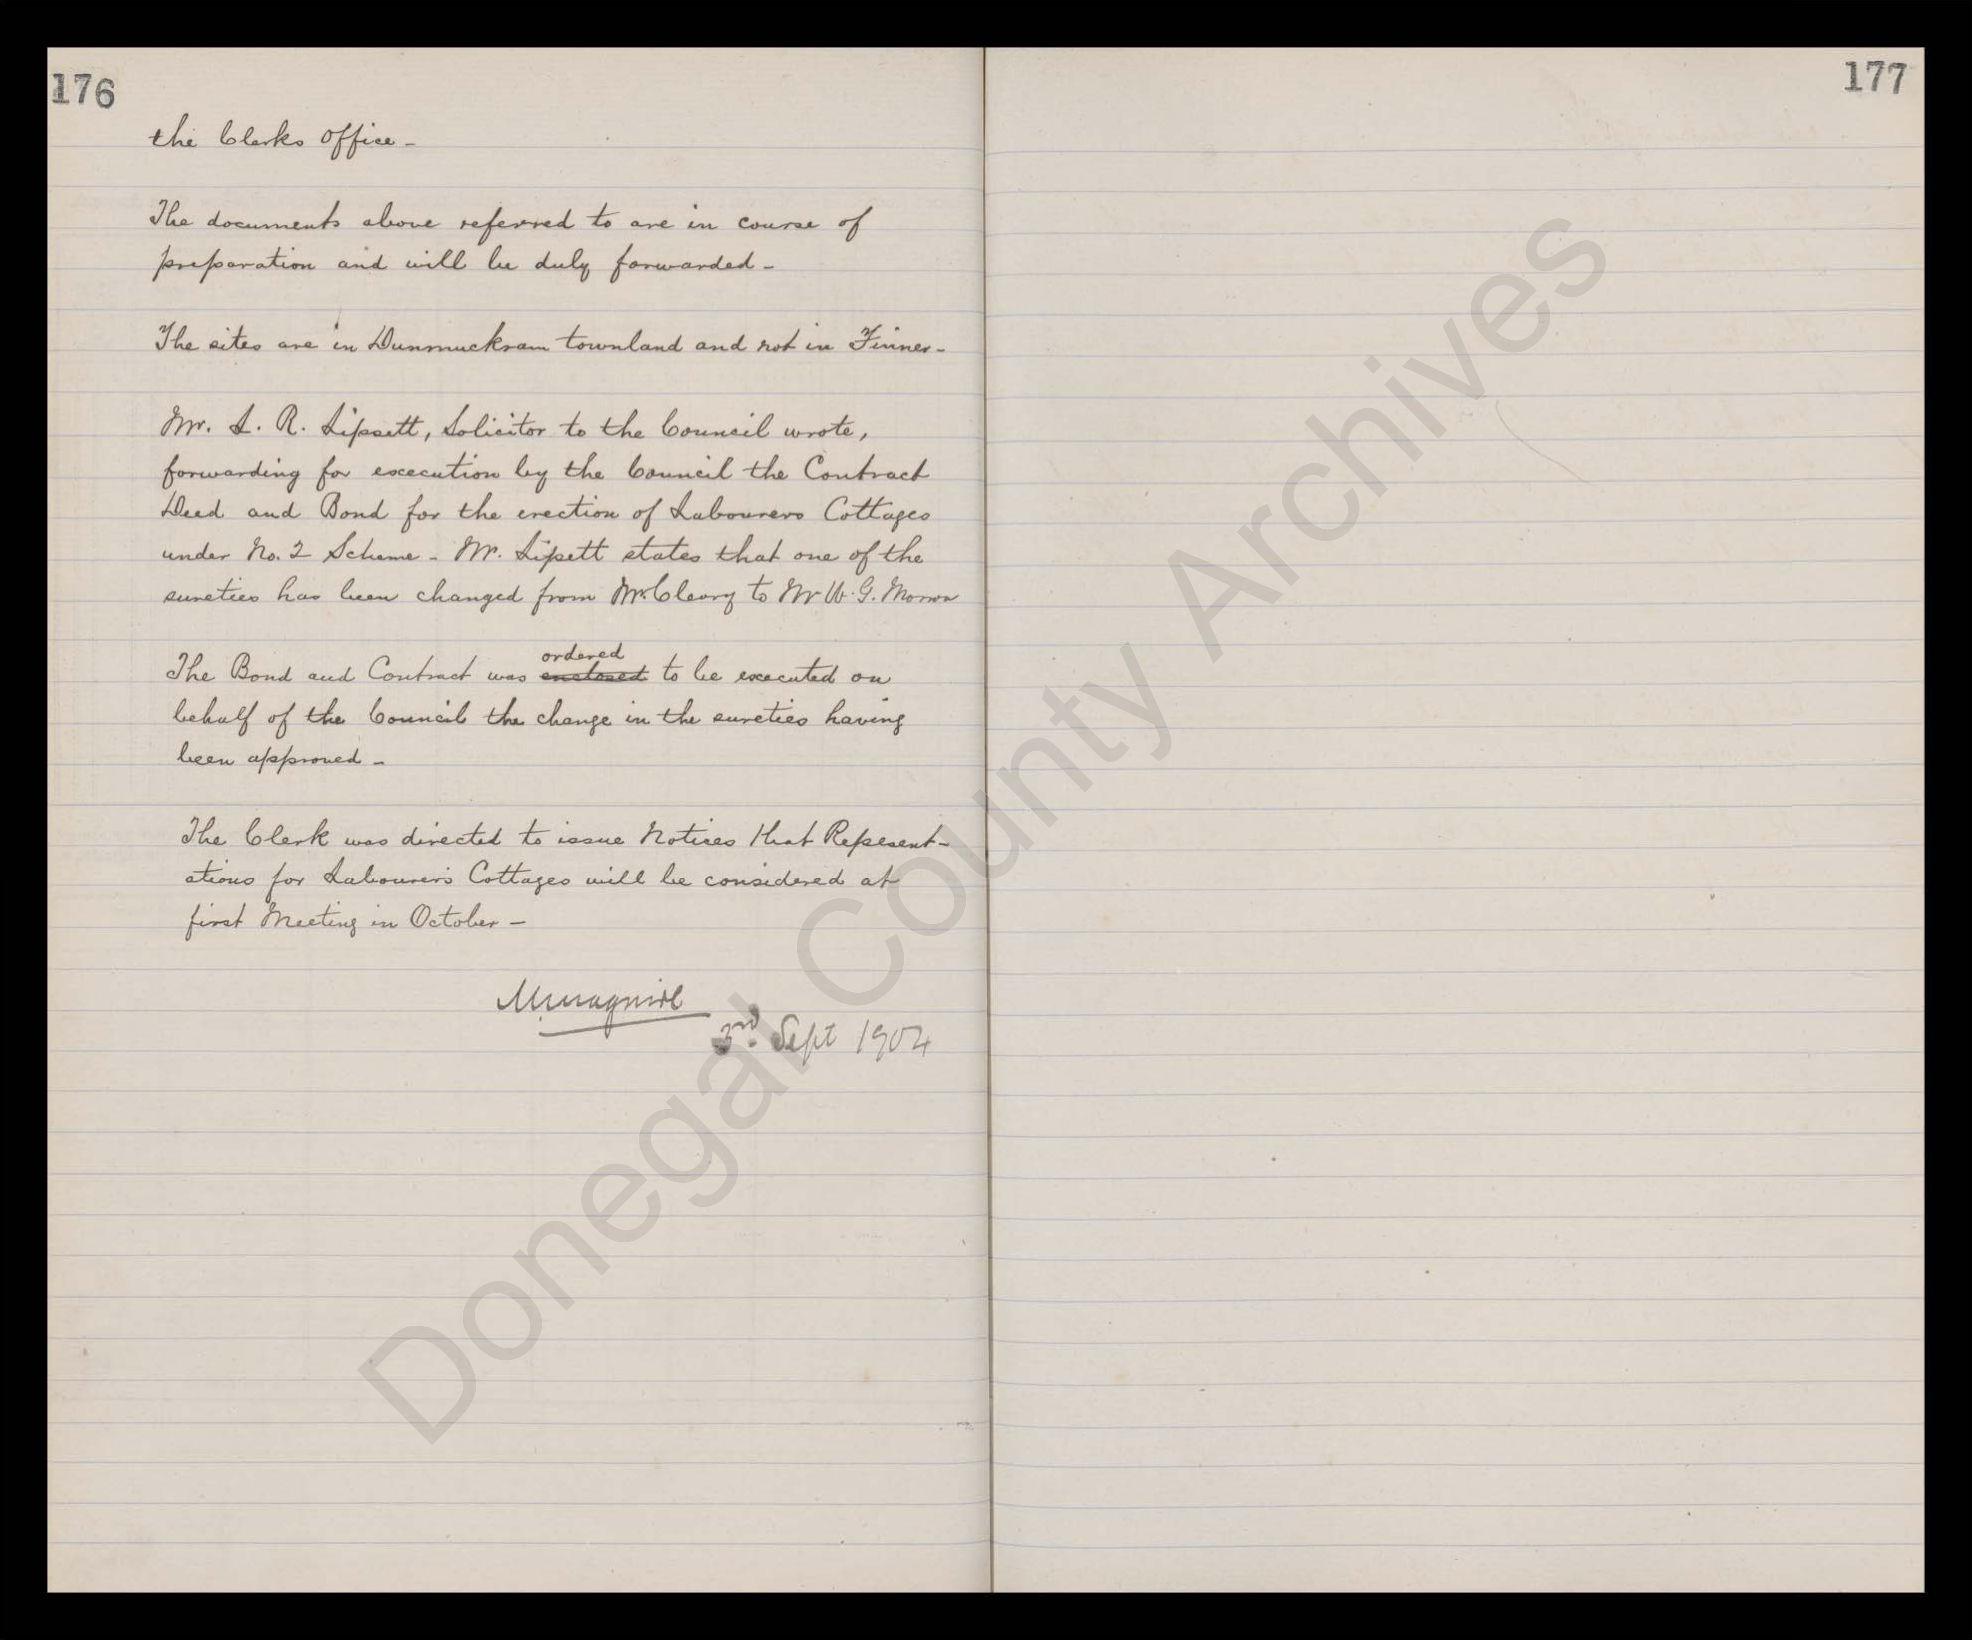 176
the Clerks Office -
The documents above referred to are in course of
preparation and will be duly forwarded -
The sites are in Dunmuckram townland and not in Finner -
Mr. L. R. Lipsett, Solicitor to the Council wrote,
forwarding for execution by the Council the Contract
Deed and Bond for the erection of Labourers Cottages
under No. 2 Scheme - Mr. Lipsett states that one of the
sureties has been changed from Mr. Cleary to Mr W. G. Morrow
ordered
The Bond and Contract was enclosed to be executed on
behalf of the Council the change in the sureties having
been approved -
The Clerk was directed to issue Notices that Represent-
ations for Labourers Cottages will be considered at
first Meeting in October -
3rd. Sept 1904
177
Donegal County Archives